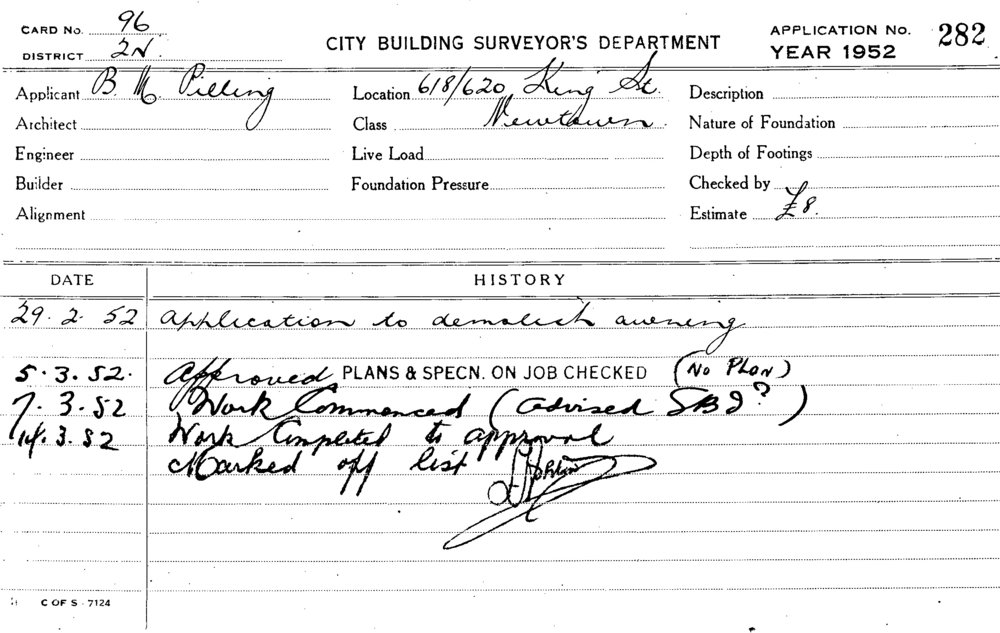 CARD No. 96
DISTRICT 2N.
CITY BUILDING SURVEYOR'S DEPARTMENT
APPLICATION No. 282
YEAR 1952
Applicant B. M Pilling
Location 618/620 King St.
Description
Architect
Class Newtown.
Nature of Foundation
Engineer
Live Load
Depth of Footings
Builder
Foundation Pressure
Checked by
Alignment
Estimate £8.
DATE HISTORY
29. 2. 52 Application to demolish awning
5. 3. 52. Approved PLANS & SPECN. ON JOB CHECKED (No Plan)
7. 3. 52 Work Commenced (advised
14. 3. 52 Work Completed to approval
Marked off list
C OF S - 7124